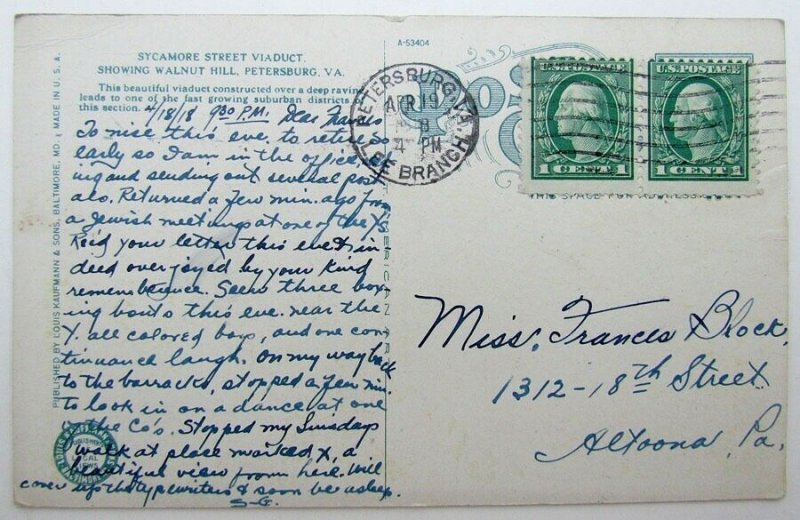 SYCAMORE STREET VIADUCT,
SHOWING WALNUT HILL, PETERSBURG, VA.
This beautiful viaduct constructed over a deep ravine
leads to one of the fast growing suburban districts of
this section.
4/18/18 930 P.M. Dear Frances
To nise this eve, to retire so
early so I am in the office
ing and sending out several post
als. Returned a few min. ago from
a Jewish meetings at one of the Y's
Rec'd your letter this eve & in-
deed overjoyed by your kind
rememberence. Seen three box
ing bouts this eve. near the
Y. all colored boys, and one con
tinuance laugh. On my way back
to the barracks, stopped a few min.
to look in on a dance at one
of the Co's. Stopped my Sundays
walk at place marked X, a
beautiful view from here. Will
cover up the typewriters & soon be asleep.
S-G.
PUBLISHED BY LOUIS KAUFMANN & SONS, BALTIMORE, MD. MADE IN U.S.A.
A-53404
PETERSBURG, VA.
APR 19
4 PM
LEE BRANCH
U.S. POSTAGE
1 CENT 1
U.S. POSTAGE
1 CENT 1
THIS SPACE FOR ADDRESS
Miss, Frances Block,
1312-18th Street
Altoona, Pa.